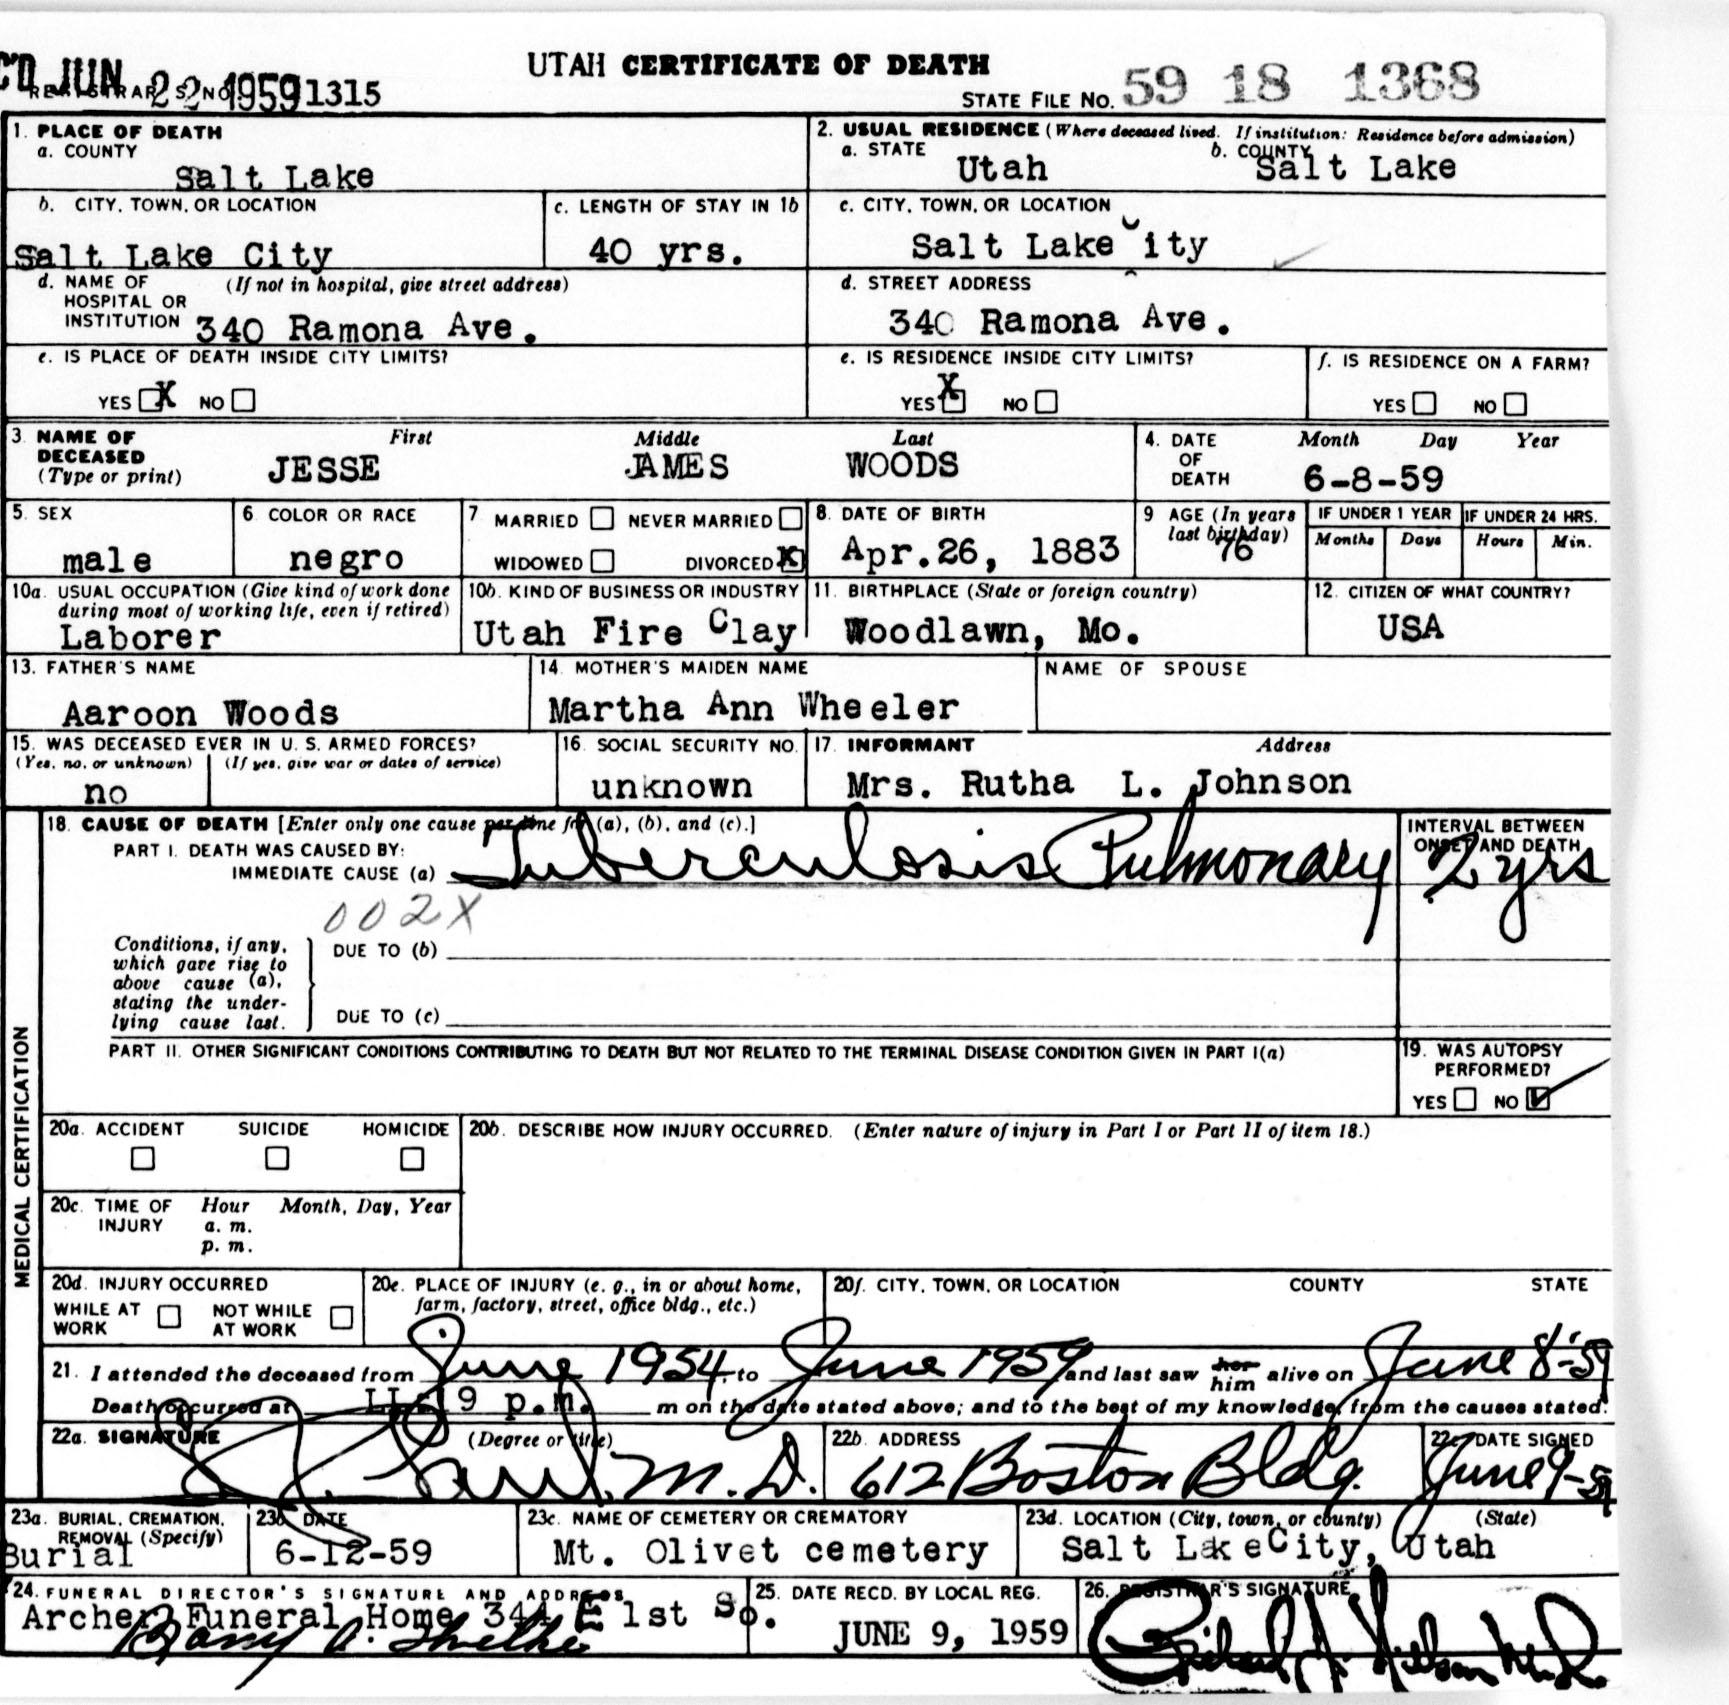 UTAH CERTIFICATE OF DEATH
C'D JUN 22 1959 1315
STATE FILE NO. 59 18 1368
1. PLACE OF DEATH
a. COUNTY
Salt Lake
2. USUAL RESIDENCE (Where deceased lived. If institution: Residence before admission)
a. STATE Utah b. COUNTY Salt Lake
b. CITY, TOWN, OR LOCATION
Salt Lake City
c. LENGTH OF STAY IN 1b
40 yrs.
c. CITY, TOWN, OR LOCATION
Salt Lake City
d. NAME OF (If not in hospital, give street address)
HOSPITAL OR
INSTITUTION 340 Ramona Ave.
d. STREET ADDRESS
340 Ramona Ave.
e. IS PLACE OF DEATH INSIDE CITY LIMITS?
YES X NO
e. IS RESIDENCE INSIDE CITY LIMITS?
YES X NO
f. IS RESIDENCE ON A FARM?
YES NO
3. NAME OF DECEASED (Type or print)
First Middle Last
JESSE JAMES WOODS
4. DATE OF DEATH
Month Day Year
6-8-59
5. SEX
male
6. COLOR OR RACE
negro
7 MARRIED NEVER MARRIED
WIDOWED DIVORCED X
8. DATE OF BIRTH
Apr.26, 1883
9 AGE (In years last birthday)
76
IF UNDER 1 YEAR IF UNDER 24 HRS.
Months Days Hours Min.
10a. USUAL OCCUPATION (Give kind of work done
during most of working life, even if retired)
Laborer
10b. KIND OF BUSINESS OR INDUSTRY
Utah Fire Clay
11. BIRTHPLACE (State or foreign country)
Woodlawn, Mo.
12. CITIZEN OF WHAT COUNTRY?
USA
13. FATHER'S NAME
Aaroon Woods
14. MOTHER'S MAIDEN NAME
Martha Ann Wheeler
NAME OF SPOUSE
15. WAS DECEASED EVER IN U. S. ARMED FORCES?
(Yes, no, or unknown) (If yes, give war or dates of service)
no
16. SOCIAL SECURITY NO.
unknown
17. INFORMANT Address
Mrs. Rutha L. Johnson
MEDICAL CERTIFICATION
18. CAUSE OF DEATH [Enter only one cause per line for (a), (b), and (c).]
PART I. DEATH WAS CAUSED BY:
IMMEDIATE CAUSE (a) Tuberculosis Pulmonary
INTERVAL BETWEEN
ONSET AND DEATH
2 yrs
002X
Conditions, if any,
which gave rise to
above cause (a),
stating the under-
lying cause last.
DUE TO (b)
DUE TO (c)
PART II. OTHER SIGNIFICANT CONDITIONS CONTRIBUTING TO DEATH BUT NOT RELATED TO THE TERMINAL DISEASE CONDITION GIVEN IN PART I(a)
19. WAS AUTOPSY
PERFORMED?
YES NO
20a. ACCIDENT SUICIDE HOMICIDE
20b. DESCRIBE HOW INJURY OCCURRED. (Enter nature of injury in Part I or Part II of item 18.)
20c. TIME OF INJURY
Hour Month, Day, Year
a. m.
p. m.
20d. INJURY OCCURRED
WHILE AT WORK NOT WHILE AT WORK
20e. PLACE OF INJURY (e. g., in or about home,
farm, factory, street, office bldg., etc.)
20f. CITY, TOWN, OR LOCATION COUNTY STATE
21. I attended the deceased from June 1954, to June 1959 and last saw her him alive on June 8-59
Death occurred at p.m. m on the date stated above; and to the best of my knowledge, from the causes stated.
22a. SIGNATURE (Degree or title)
M.D.
22b. ADDRESS
612 Boston Bldg.
22c. DATE SIGNED
June 9-59
23a. BURIAL, CREMATION,
REMOVAL (Specify)
Burial
23b. DATE
6-12-59
23c. NAME OF CEMETERY OR CREMATORY
Mt. Olivet cemetery
23d. LOCATION (City, town, or county) (State)
Salt Lake City, Utah
24. FUNERAL DIRECTOR'S SIGNATURE AND ADDRESS
Archer Funeral Home E 1st So.
25. DATE RECD. BY LOCAL REG.
JUNE 9, 1959
26. REGISTRAR'S SIGNATURE